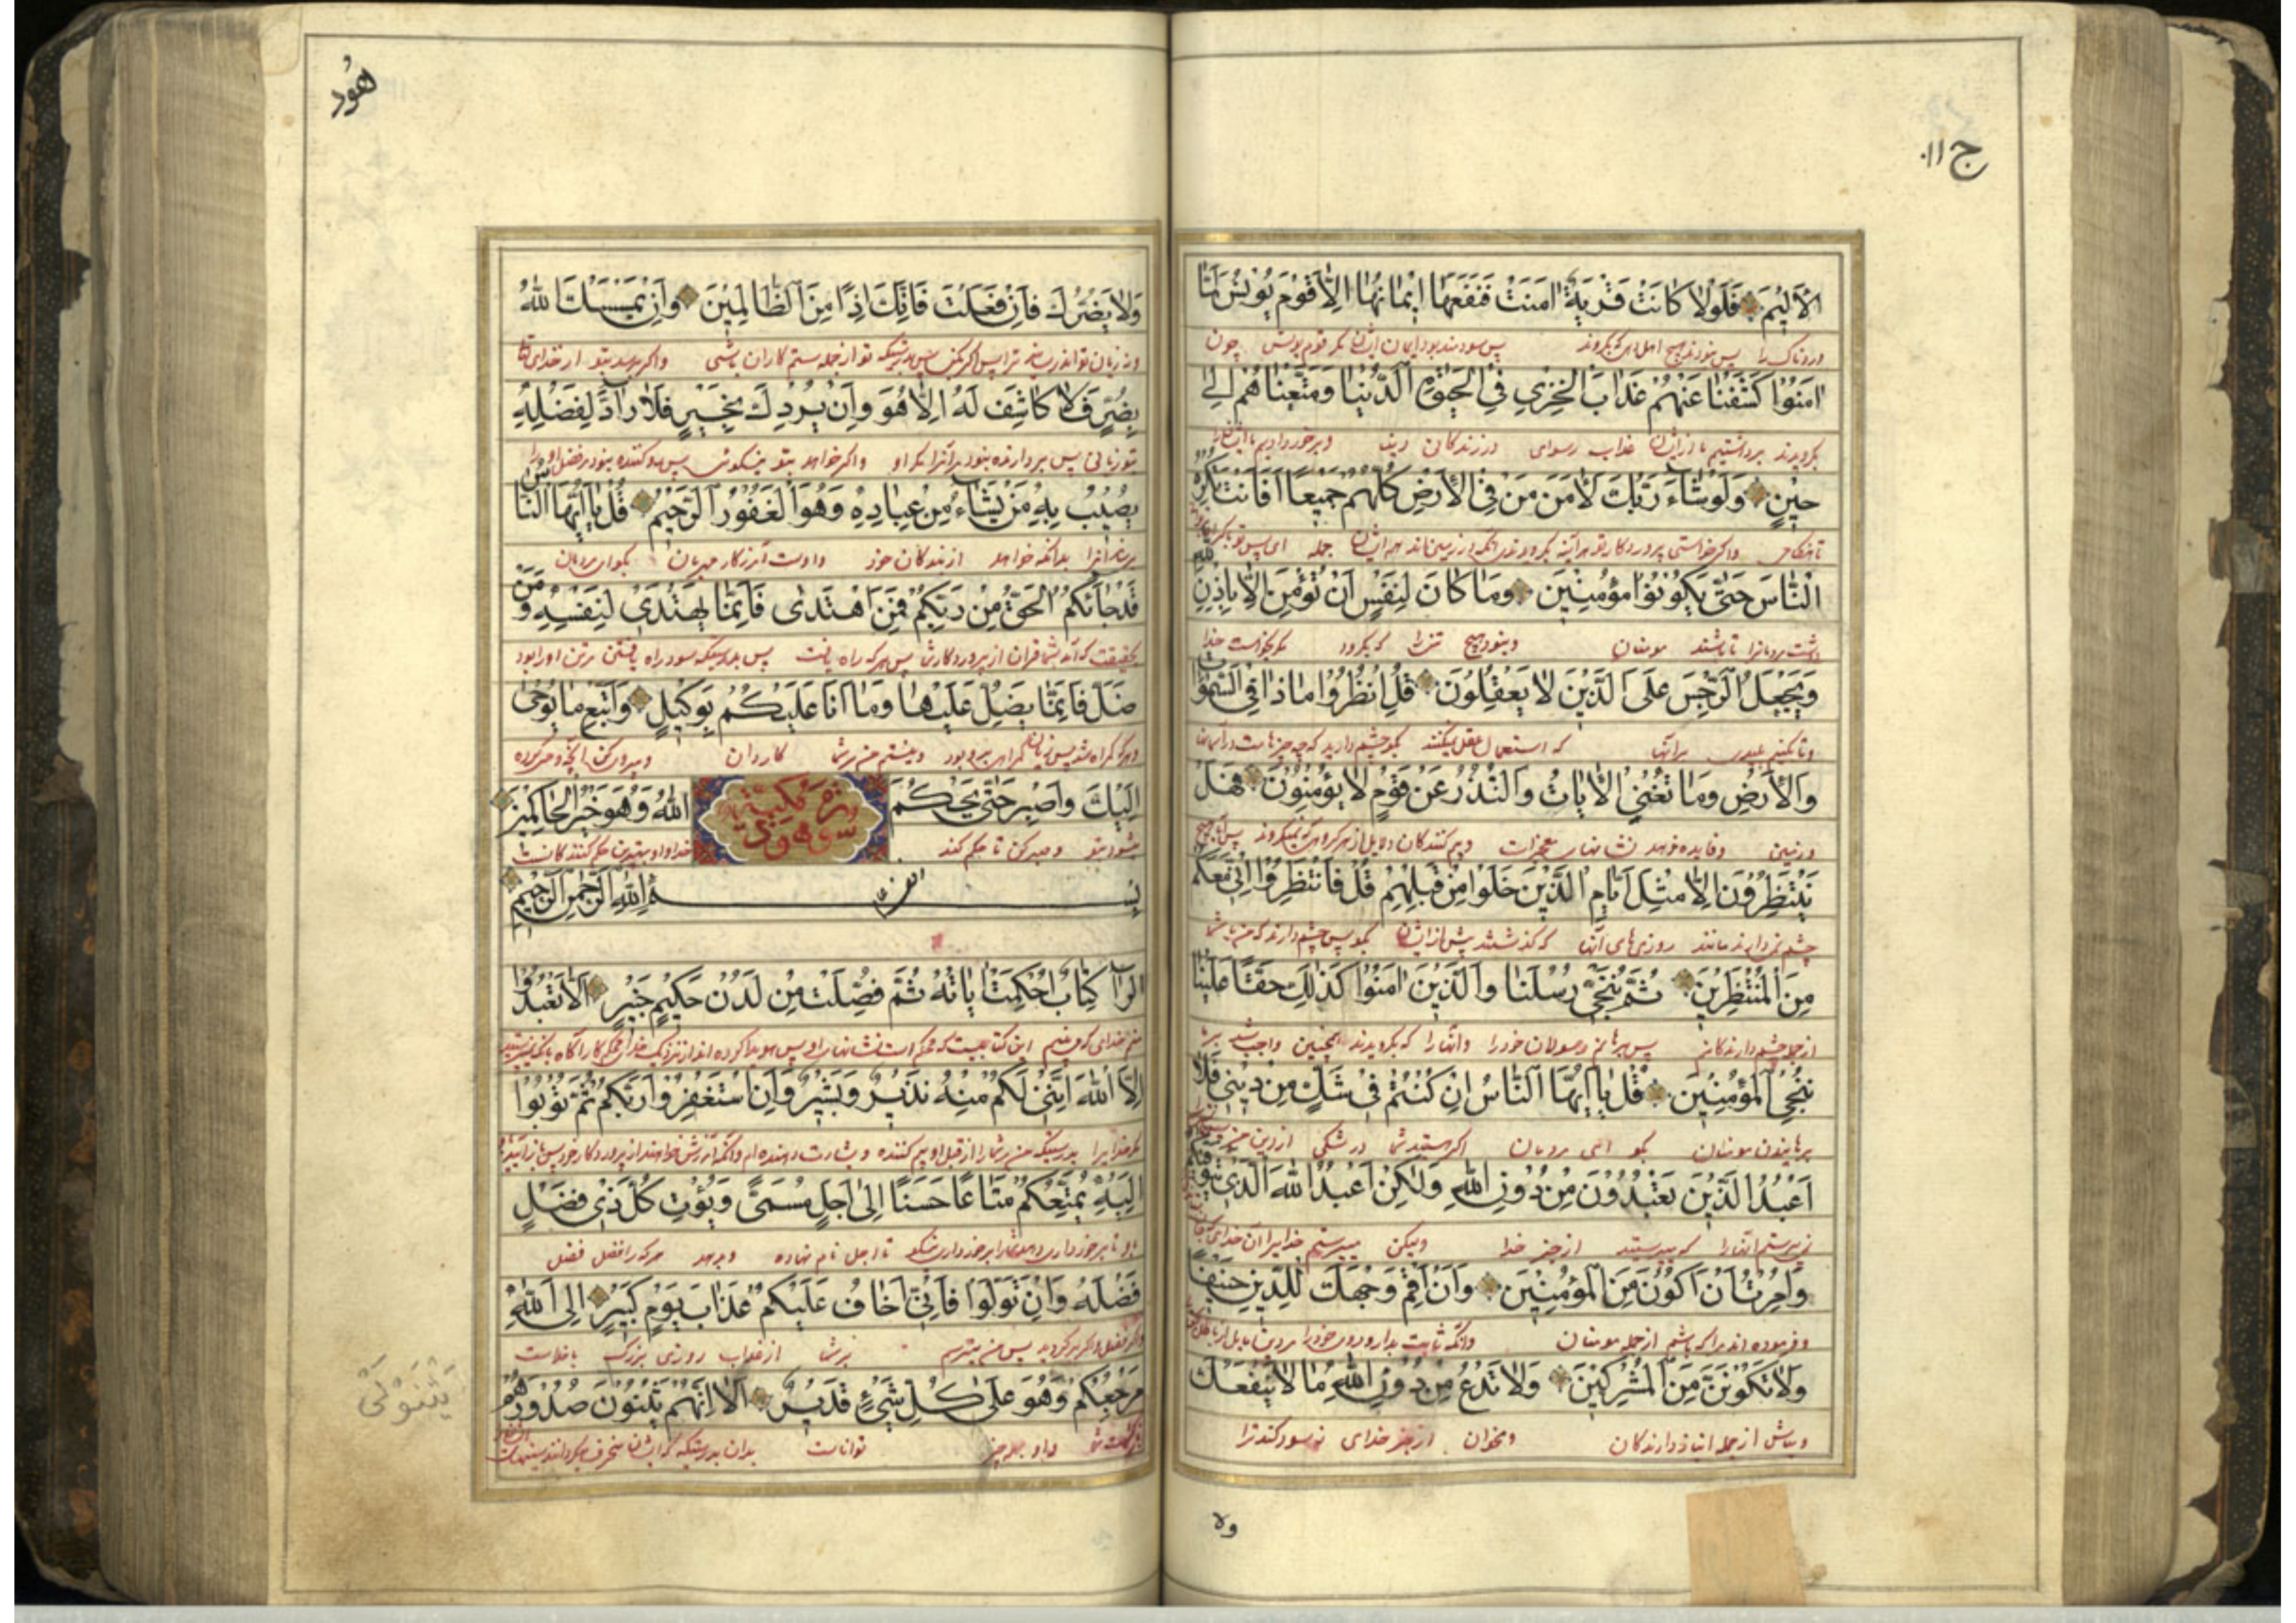 ج ۱۱
الْأَلِيمَ فَلَوْلَا كَانَتْ قَرْيَةٌ اٰمَنَتْ فَنَفَعَهَا إِيمَانُهَا إِلَّا قَوْمَ يُونُسَ لَمَّا
دردناک را پس نبودند هیچ اهل که بگروند پس سودمند بود ایمان ایشان مگر قوم یونس چون
اٰمَنُوا كَشَفْنَا عَنْهُمْ عَذَابَ الْخِزْيِ فِي الْحَيٰوةِ الدُّنْيَا وَمَتَّعْنَاهُمْ إِلَىٰ
بگرویدند برداشتیم ما از ایشان عذاب رسوای در زندگانی دنیا و برخورداریم ما ایشانرا
حِينٍ وَلَوْ شَاءَ رَبُّكَ لَاٰمَنَ مَنْ فِي الْأَرْضِ كُلُّهُمْ جَمِيعًا أَفَأَنْتَ تُكْرِهُ
تا هنگامی و اگر خواستی پروردگار تو هر آینه بگرویدند آنکه در زمین‌اند همه ایشان جمله ای پس تو
النَّاسَ حَتَّىٰ يَكُونُوا مُؤْمِنِينَ وَمَا كَانَ لِنَفْسٍ أَنْ تُؤْمِنَ إِلَّا بِإِذْنِ اللّٰهِ
مردمانرا تا باشند مومنان و نبود هیچ تن را که بگرود مگر بخواست خدا
وَيَجْعَلُ الرِّجْسَ عَلَى الَّذِينَ لَا يَعْقِلُونَ قُلِ انْظُرُوا مَاذَا فِي السَّمٰوَاتِ
بر آنها که استعمال عقل نمیکنند بگو چشم دارید که چه چیزهاست در آسمانها
وَالْأَرْضِ وَمَا تُغْنِي الْاٰيَاتُ وَالنُّذُرُ عَنْ قَوْمٍ لَا يُؤْمِنُونَ فَهَلْ
و زمین و فایده ندهد نشانها معجزات و بیم کنندگان
يَنْتَظِرُونَ إِلَّا مِثْلَ أَيَّامِ الَّذِينَ خَلَوْا مِنْ قَبْلِهِمْ قُلْ فَانْتَظِرُوا إِنِّي مَعَكُمْ
چشم نمیدارند مانند روزهای آنها که گذشتند پیش از ایشان بگو پس چشم دارند که من با شما
مِنَ الْمُنْتَظِرِينَ ثُمَّ نُنَجِّي رُسُلَنَا وَالَّذِينَ اٰمَنُوا كَذٰلِكَ حَقًّا عَلَيْنَا
از جمله چشم دارندگانم پس برهانم رسولان خود را و آنها را که بگرویدند همچنین واجب شد بر ما
نُنْجِي الْمُؤْمِنِينَ قُلْ يَا أَيُّهَا النَّاسُ إِنْ كُنْتُمْ فِي شَكٍّ مِنْ دِينِي فَلَا
برهانیدن مومنان بگو ای مردمان اگر هستید شما در شکی از دین من
أَعْبُدُ الَّذِينَ تَعْبُدُونَ مِنْ دُونِ اللّٰهِ وَلٰكِنْ أَعْبُدُ اللّٰهَ الَّذِي يَتَوَفَّيٰكُمْ
نپرستم آنها را که میپرستید از جز خدا و لیکن میپرستم خدایرا آن خدای که
وَأُمِرْتُ أَنْ أَكُونَ مِنَ الْمُؤْمِنِينَ وَأَنْ أَقِمْ وَجْهَكَ لِلدِّينِ حَنِيفًا
و فرموده اند مرا که باشم از جمله مومنان و آنکه ثابت بدار روی خود را
وَلَا تَكُونَنَّ مِنَ الْمُشْرِكِينَ وَلَا تَدْعُ مِنْ دُونِ اللّٰهِ مَا لَا يَنْفَعُكَ
و مباش از جمله انباز دارندگان و مخوان از جز خدای نه سود کند ترا
ولا
هُود
وَلَا يَضُرُّكَ فَإِنْ فَعَلْتَ فَإِنَّكَ إِذًا مِنَ الظَّالِمِينَ وَإِنْ يَمْسَسْكَ اللّٰهُ
تو از جمله ستمکاران باشی و اگر برسد بتو از خدای
بِضُرٍّ فَلَا كَاشِفَ لَهُ إِلَّا هُوَ وَإِنْ يُرِدْكَ بِخَيْرٍ فَلَا رَادَّ لِفَضْلِهِ
پس بردارنده نبود مر آنرا مگر او و اگر خواهد بتو نیکوئی پس رد کننده نبود مر فضل او را
يُصِيبُ بِهِ مَنْ يَشَاءُ مِنْ عِبَادِهِ وَهُوَ الْغَفُورُ الرَّحِيمُ قُلْ يَا أَيُّهَا النَّاسُ
برساند آنرا بدانکه خواهد از بندگان خود و اوست آمرزگار مهربان بگو ای مردمان
قَدْ جَاءَكُمُ الْحَقُّ مِنْ رَبِّكُمْ فَمَنِ اهْتَدٰى فَإِنَّمَا يَهْتَدِي لِنَفْسِهِ وَمَنْ
بحقیقت که آمد بشما قران از پروردگار شما پس هر که راه یافت پس بدرستیکه سود راه یافتن مر تن او را بود
ضَلَّ فَإِنَّمَا يَضِلُّ عَلَيْهَا وَمَا أَنَا عَلَيْكُمْ بِوَكِيلٍ وَاتَّبِعْ مَا يُوحٰى
و هر که گمراه شد پس زیان گمراهی بر او بود و نیستم من بر شما کاردان و پیروی کن آنچه وحی کرده
إِلَيْكَ وَاصْبِرْ حَتَّىٰ يَحْكُمَ اللّٰهُ وَهُوَ خَيْرُ الْحَاكِمِينَ
میشود بتو و صبر کن تا حکم کند خدا و او بهترین حکم کنندگانست
بِسْمِ اللّٰهِ الرَّحْمٰنِ الرَّحِيمِ
الر كِتَابٌ أُحْكِمَتْ اٰيَاتُهُ ثُمَّ فُصِّلَتْ مِنْ لَدُنْ حَكِيمٍ خَبِيرٍ أَلَّا تَعْبُدُوا
منم خدای که میبینم این کتابیست که محکم است نشانهای او پس
إِلَّا اللّٰهَ إِنَّنِي لَكُمْ مِنْهُ نَذِيرٌ وَبَشِيرٌ وَأَنِ اسْتَغْفِرُوا رَبَّكُمْ ثُمَّ تُوبُوا
مگر خدایرا بدرستیکه من مر شما را از قبل او بیم کننده و بشارت دهنده ام
إِلَيْهِ يُمَتِّعْكُمْ مَتَاعًا حَسَنًا إِلَىٰ أَجَلٍ مُسَمًّى وَيُؤْتِ كُلَّ ذِي فَضْلٍ
تا اجل نام نهاده و بدهد هر که را فضل فضل
فَضْلَهُ وَإِنْ تَوَلَّوْا فَإِنِّي أَخَافُ عَلَيْكُمْ عَذَابَ يَوْمٍ كَبِيرٍ إِلَى اللّٰهِ
پس من میترسم بر شما از عذاب روزی بزرگ با خداست
مَرْجِعُكُمْ وَهُوَ عَلَىٰ كُلِّ شَيْءٍ قَدِيرٌ أَلَا إِنَّهُمْ يَثْنُونَ صُدُورَهُمْ
بازگشت شما و او بر همه چیز تواناست بدان بدرستیکه ایشان